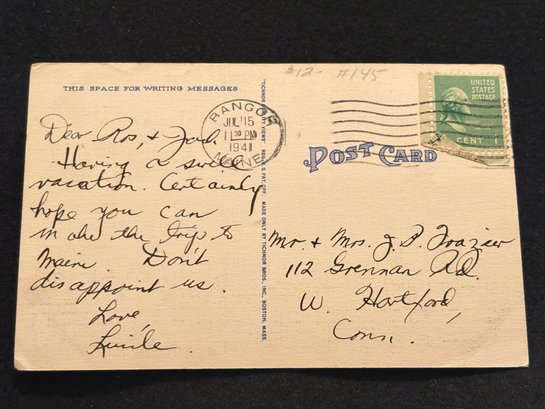 $12- #145
THIS SPACE FOR WRITING MESSAGES
BANGOR
JUL 15
11 30 PM
1941
MAINE
UNITED
STATES
POSTAGE
1 CENT 1
POST CARD
"TICHNOR QUALITY VIEWS" REG. U.S. PAT. OFF. MADE ONLY BY TICHNOR BROS., INC., BOSTON, MASS.
Dear Ros, & Jack.
Having a swell
vacation. Certainly
hope you can
make the trip to
Maine. Don't
disappoint us.
Love,
Lucile.
Mr. & Mrs. J. P. Frazier
112 Grennan Rd.
W. Hartford,
Conn.